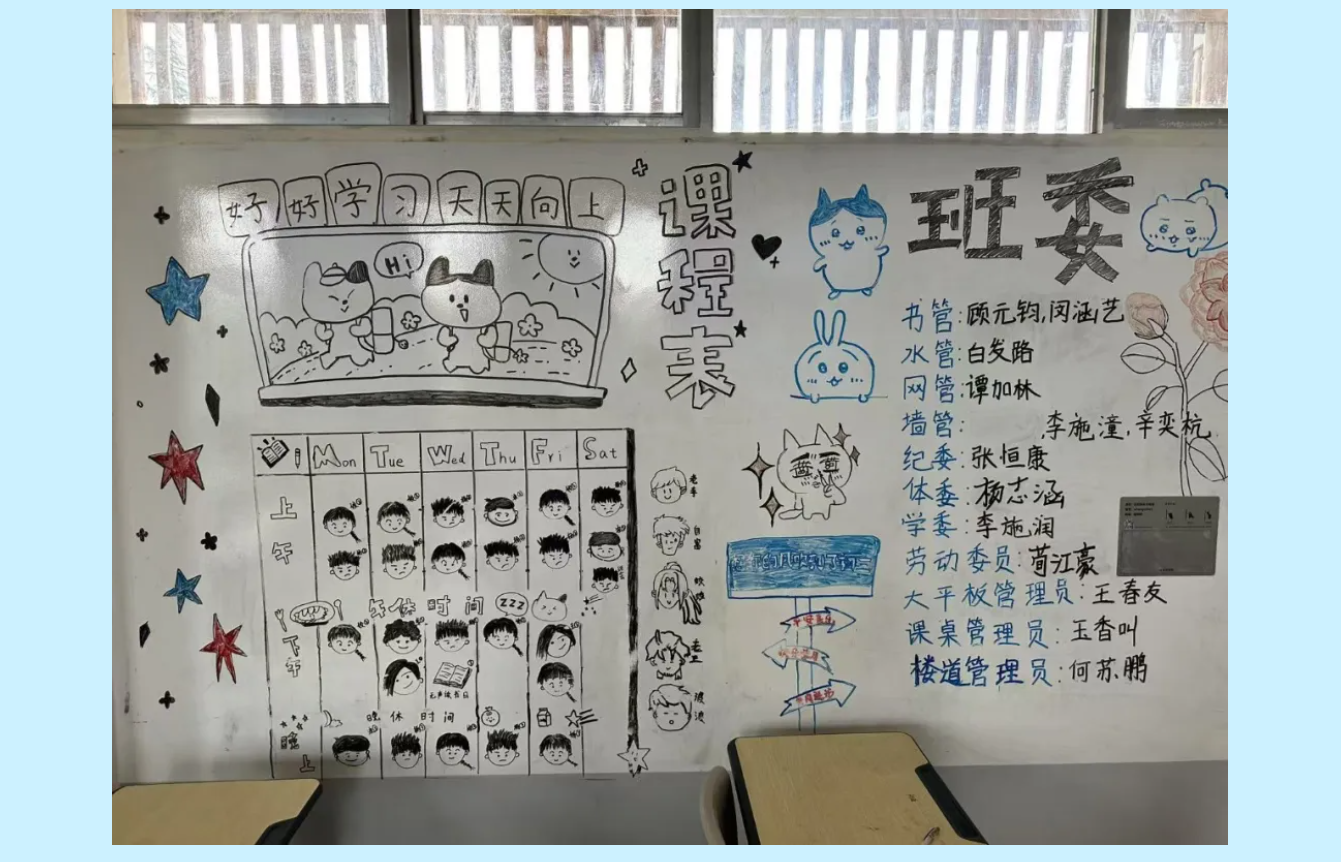 好好学习天天向上
Hi
课程表
Mon Tue Wed Thu Fri Sat
上午
午休时间 zzz
下午
无声读书日
晚休时间
晚上
班委
书管:顾元钧,闵涵艺
水管:白发路
网管:谭加林
墙管: ,李施潼,辛奕杭
纪委:张恒康
体委:杨志涵
学委:李施润
劳动委员:荀江豪
大平板管理员:王春友
课桌管理员:玉香叫
楼道管理员:何苏鹏